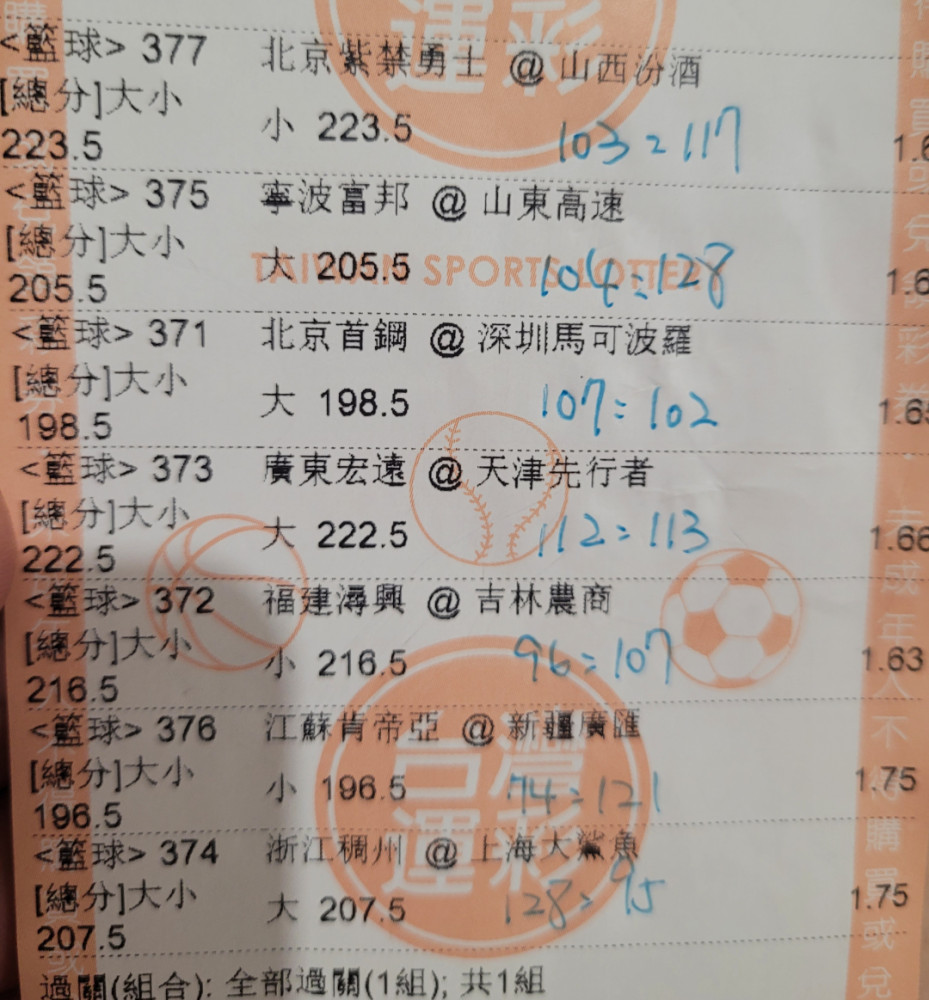 <籃球> 377 北京紫禁勇士 @ 山西汾酒
[總分]大小 小 223.5 103=117
223.5
<籃球> 375 寧波富邦 @ 山東高速
[總分]大小 大 205.5 104=128
205.5
TAIWAN SPORTS LOTTERY
<籃球> 371 北京首鋼 @ 深圳馬可波羅
[總分]大小 大 198.5 107=102
198.5
<籃球> 373 廣東宏遠 @ 天津先行者
[總分]大小 大 222.5 112=113 1.66
222.5
<籃球> 372 福建潯興 @ 吉林農商
[總分]大小 小 216.5 96=107 1.63
216.5
<籃球> 376 江蘇肯帝亞 @ 新疆廣匯
[總分]大小 小 196.5 74=121 1.75
196.5
<籃球> 374 浙江稠州 @ 上海大鯊魚
[總分]大小 大 207.5 128=95 1.75
207.5
過關(組合): 全部過關(1組); 共1組
運彩
台灣
運彩